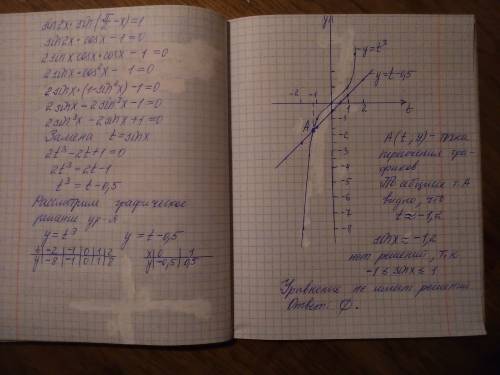 sin2x·sin(π/2−x)=1
sin2x·cosx−1=0
2sinx cosx·cosx−1=0
2sinx·cos²x−1=0
2sinx·(1−sin²x)−1=0
2sinx−2sin³x−1=0
2sin³x−2sinx+1=0
Замена t=sinx
2t³−2t+1=0
2t³=2t−1
t³=t−0,5
Рассмотрим графическое
решение ур-я
y=t³ y=t−0,5
t −2 −1 0 1 2
y −8 −1 0 1 8
x 0 1
y −0,5 0,5
y
y=t³
y=t−0,5
−2 −1 1 2 t
A
−2
−3
−4
−5
−6
−7
−8
A(t,y)−точка
пересечения гра-
фиков
По абсциссе т.А
видно, что
t≈−1,2
sinx≈−1,2
нет решений, т.к.
−1≤sinx≤1
Уравнение не имеет решений
Ответ: ∅.